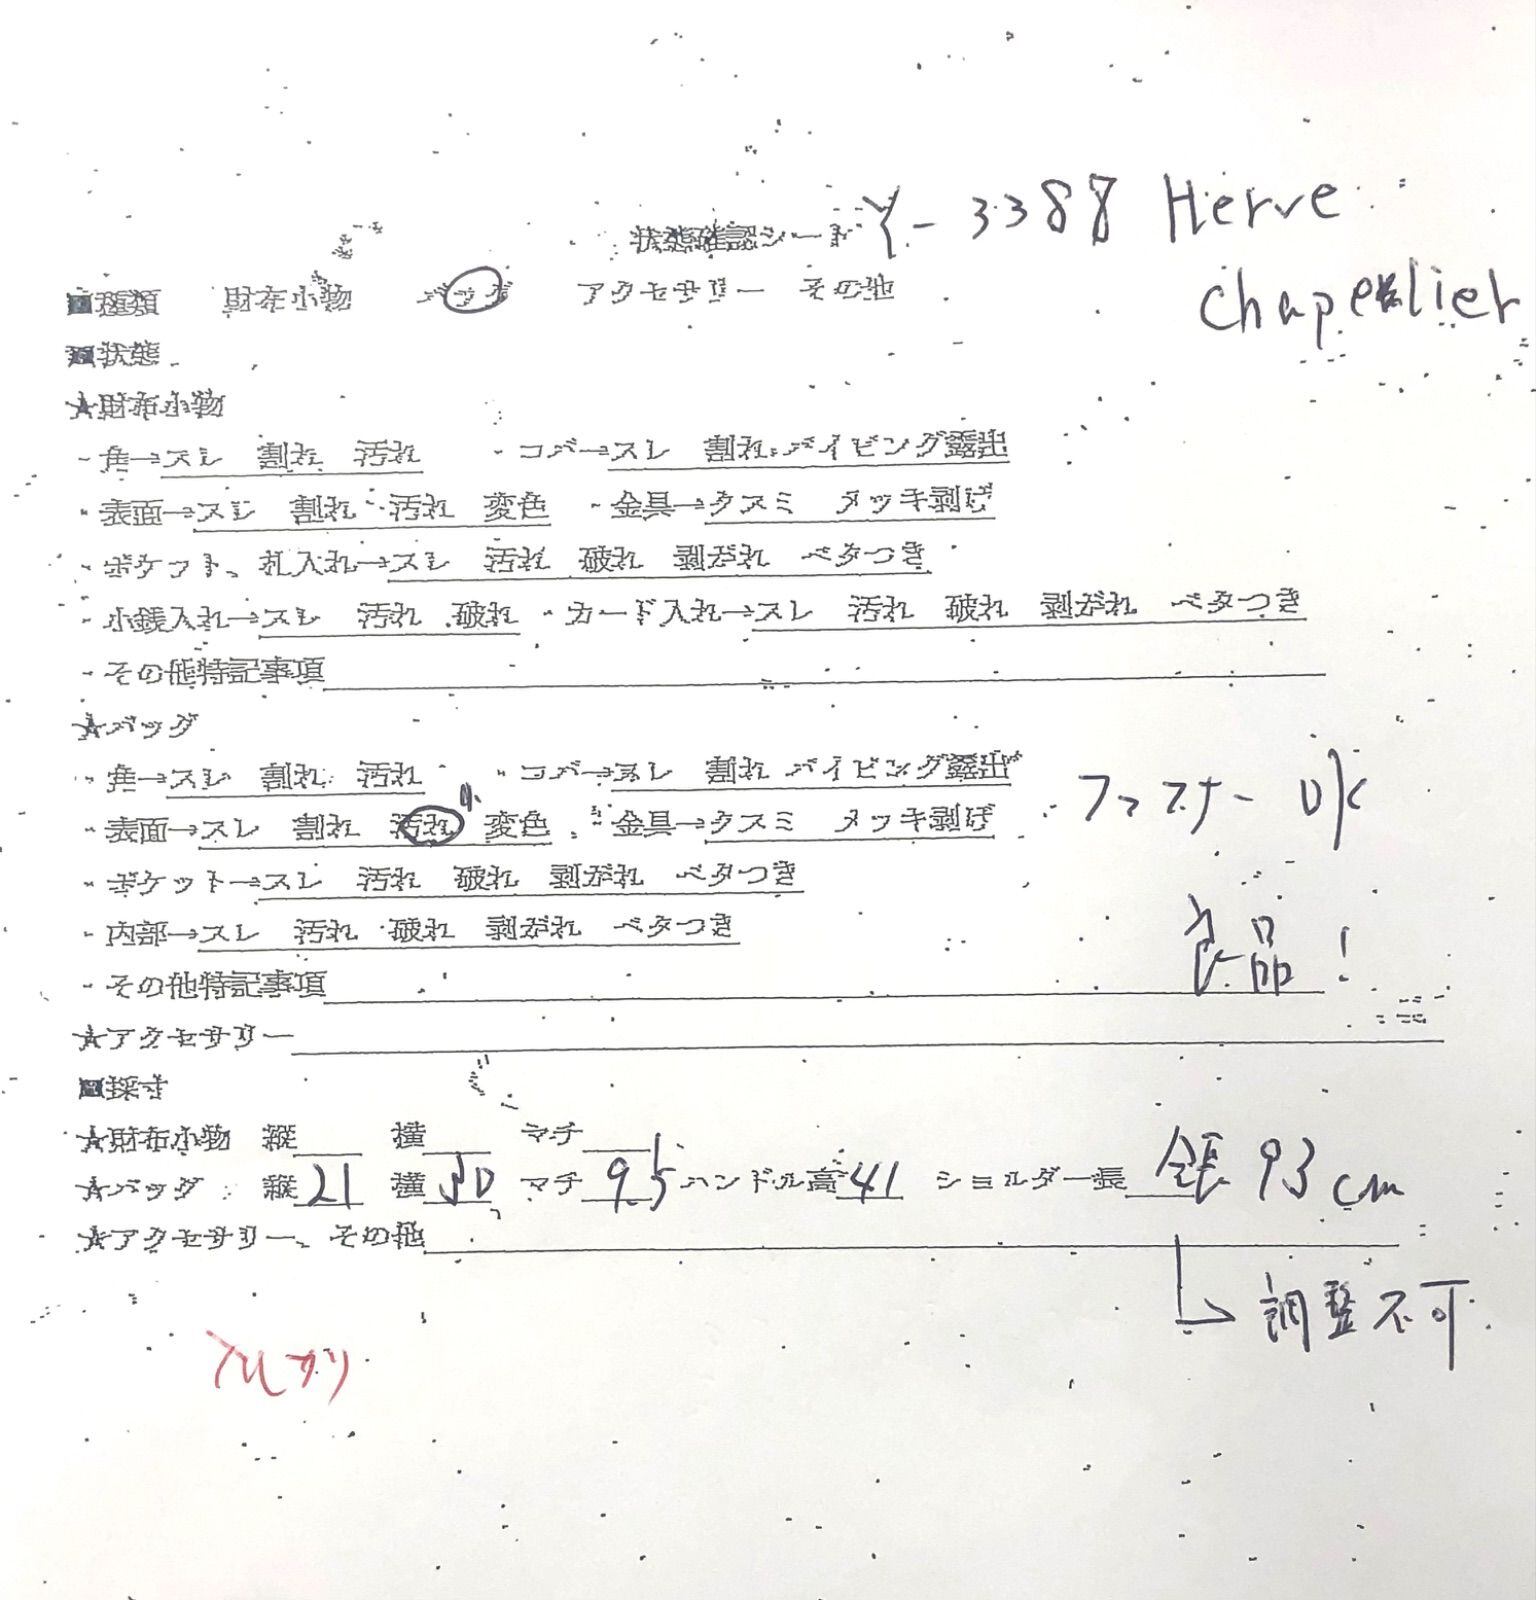 状態確認シート Y-3388 Herve
Chapelier
■種類 財布小物 バッグ アクセサリー その他
■状態
★財布小物
・角→スレ 割れ 汚れ ・コバ→スレ 割れ パイピング露出
・表面→スレ 割れ 汚れ 変色 ・金具→クスミ メッキ剥げ
・ポケット、札入れ→スレ 汚れ 破れ 剥がれ ベタつき
・小銭入れ→スレ 汚れ 破れ ・カード入れ→スレ 汚れ 破れ 剥がれ ベタつき
・その他特記事項
★バッグ
・角→スレ 割れ 汚れ ・コバ→スレ 割れ パイピング露出
・表面→スレ 割れ 汚れ 変色 ・金具→クスミ メッキ剥げ ファスナー OK
・ポケット→スレ 汚れ 破れ 剥がれ ベタつき
・内部→スレ 汚れ 破れ 剥がれ ベタつき
良品!
・その他特記事項
★アクセサリー
■採寸
★財布小物 縦 横 マチ
★バッグ 縦21 横30 マチ9.5 ハンドル高41 ショルダー長 全長93cm
★アクセサリー、その他
↳調整不可
メルカリ